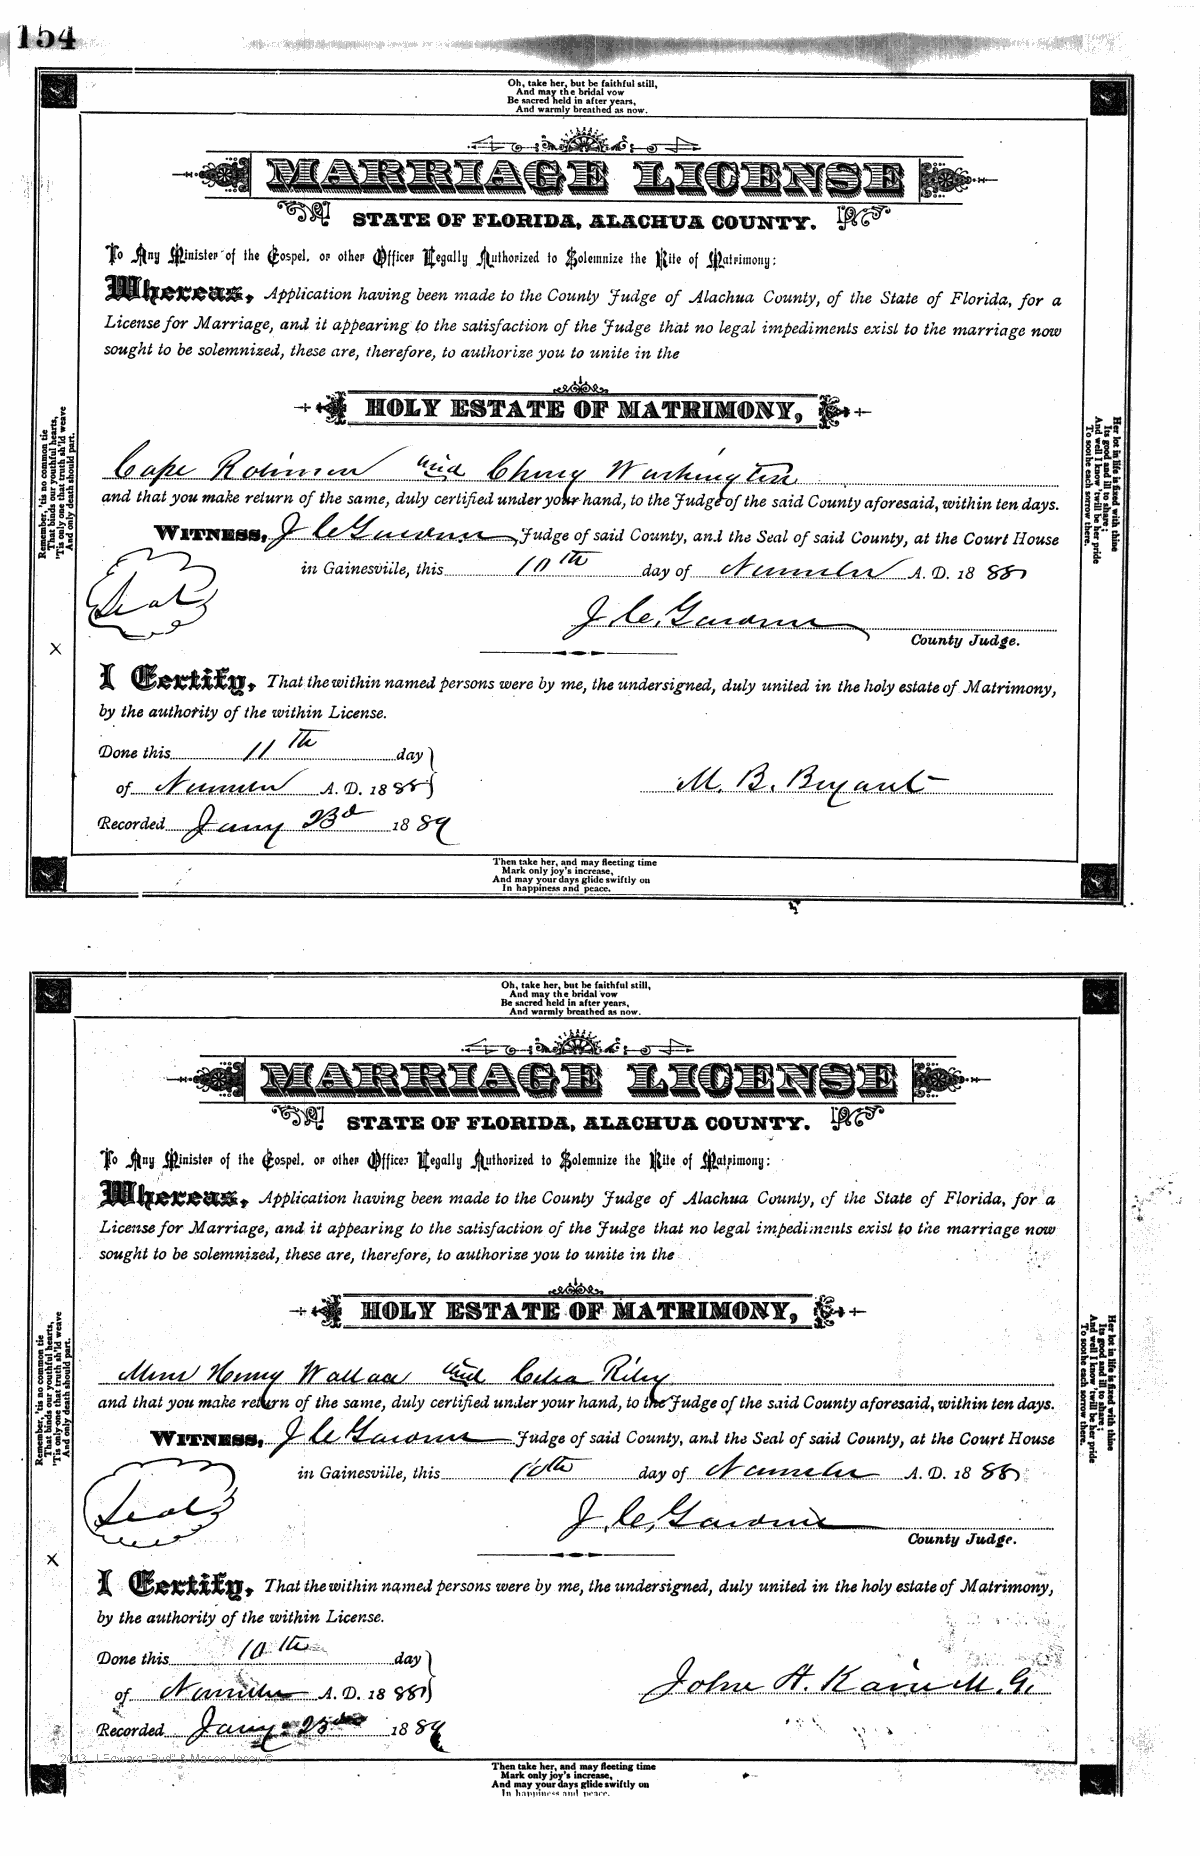 154
Oh, take her, but be faithful still,
And may the bridal vow
Be sacred held in after years,
And warmly breathed as now.
MARRIAGE LICENSE
STATE OF FLORIDA, ALACHUA COUNTY.
To Any Minister of the Gospel, or other Officer Legally Authorized to Solemnize the Rite of Matrimony:
Whereas, Application having been made to the County Judge of Alachua County, of the State of Florida, for a
License for Marriage, and it appearing to the satisfaction of the Judge that no legal impediments exist to the marriage now
sought to be solemnized, these are, therefore, to authorize you to unite in the
HOLY ESTATE OF MATRIMONY,
Cape Robinson and Washington
and that you make return of the same, duly certified under your hand, to the Judge of the said County aforesaid, within ten days.
WITNESS, J C Gardner Judge of said County, and the Seal of said County, at the Court House
in Gainesville, this 10th day of November A. D. 1888
Seal
J. C. Gardner
County Judge.
I Certify, That the within named persons were by me, the undersigned, duly united in the holy estate of Matrimony,
by the authority of the within License.
Done this 11th day
of November A. D. 1888
M. B. Bryant
Recorded Jany 23d 1889
Then take her, and may fleeting time
Mark only joy's increase,
And may your days glide swiftly on
In happiness and peace.
Remember, 'tis no common tie
That binds our youthful hearts,
'Tis only one that truth sh'ld weave
And only death should part.
Her lot in life is fixed with thine
Its good and ill to share;
And well I know 'twill be her pride
To soothe each sorrow there.
X
Oh, take her, but be faithful still,
And may the bridal vow
Be sacred held in after years,
And warmly breathed as now.
MARRIAGE LICENSE
STATE OF FLORIDA, ALACHUA COUNTY.
To Any Minister of the Gospel, or other Officer Legally Authorized to Solemnize the Rite of Matrimony:
Whereas, Application having been made to the County Judge of Alachua County, of the State of Florida, for a
License for Marriage, and it appearing to the satisfaction of the Judge that no legal impediments exist to the marriage now
sought to be solemnized, these are, therefore, to authorize you to unite in the
HOLY ESTATE OF MATRIMONY,
Henry Wallace and Celia Riley
and that you make return of the same, duly certified under your hand, to the Judge of the said County aforesaid, within ten days.
WITNESS, J C Gardner Judge of said County, and the Seal of said County, at the Court House
in Gainesville, this 10th day of November A. D. 1888
Seal
J. C. Gardner
County Judge.
I Certify, That the within named persons were by me, the undersigned, duly united in the holy estate of Matrimony,
by the authority of the within License.
Done this 10th day
of November A. D. 1888
John H. M. G.
Recorded Jany 23 1889
Then take her, and may fleeting time
Mark only joy's increase,
And may your days glide swiftly on
In happiness and peace.
Remember, 'tis no common tie
That binds our youthful hearts,
'Tis only one that truth sh'ld weave
And only death should part.
Her lot in life is fixed with thine
Its good and ill to share;
And well I know 'twill be her pride
To soothe each sorrow there.
X